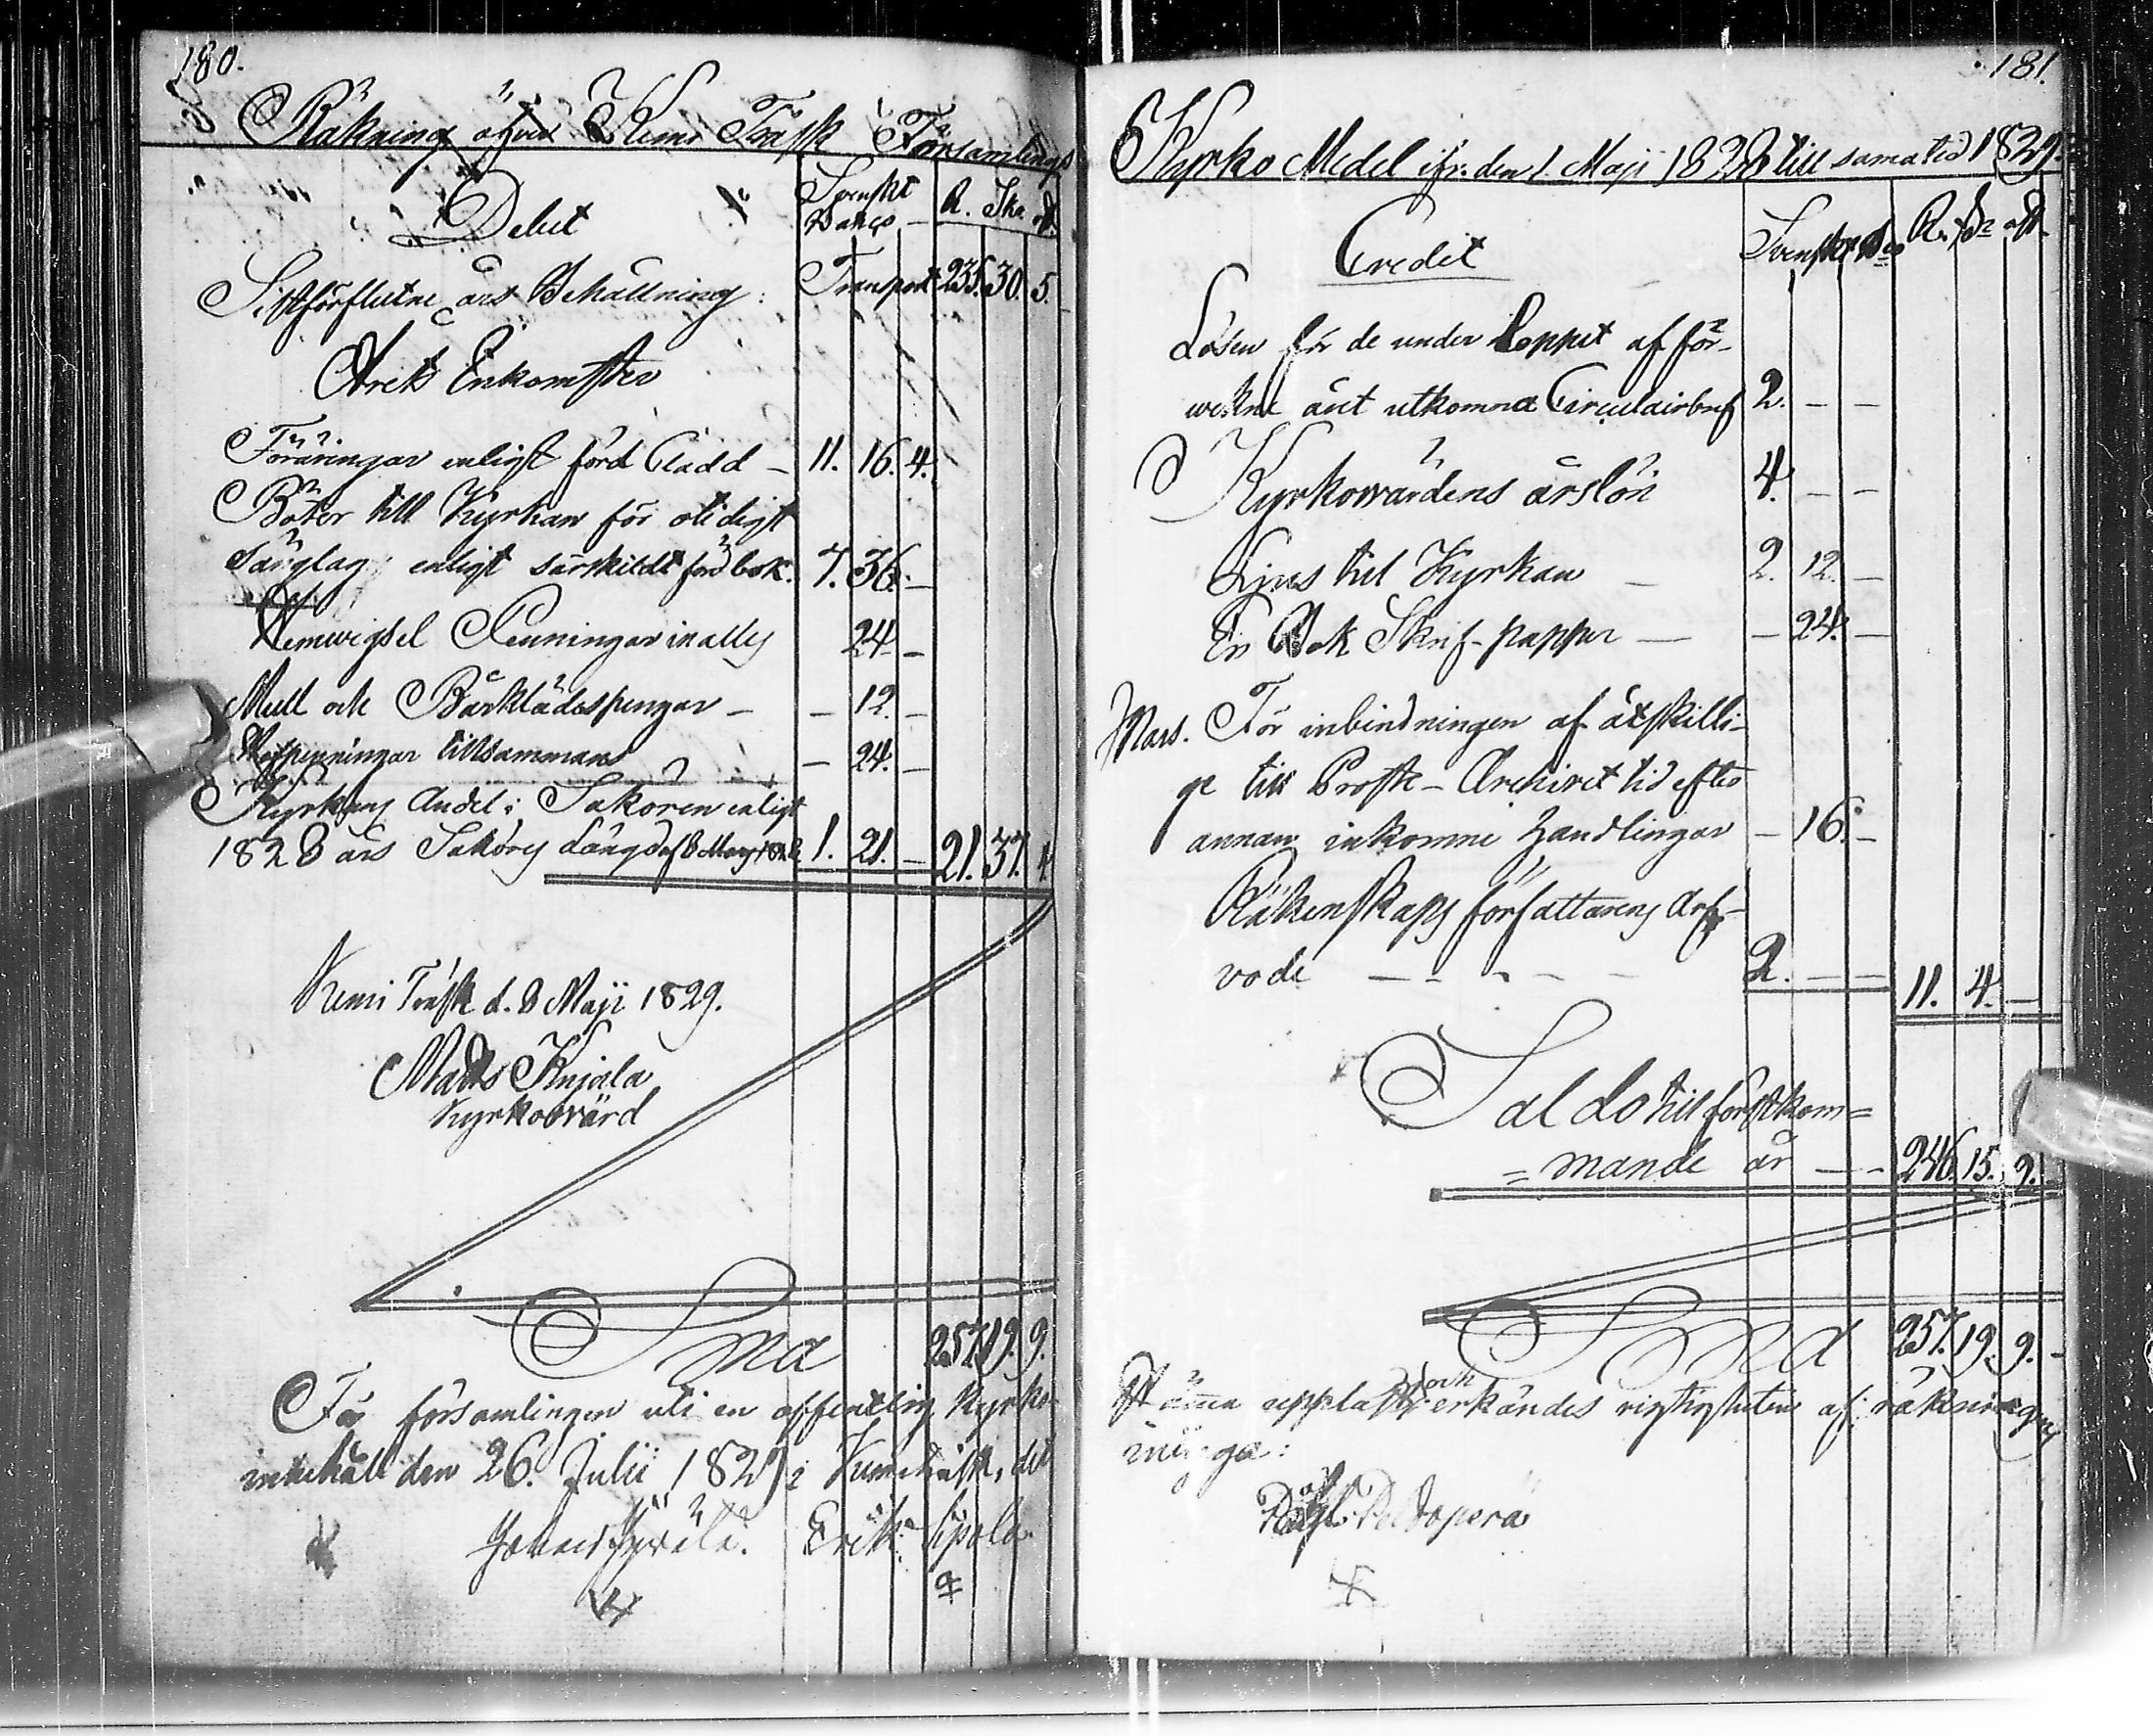 180.
Räkning öfver Kemi Träsk Församlings
Debet Svenskt Banco R. Sk. rst.
Sistförflutne års Behållning: Transport 235. 30. 5.
Årets Inkomster
Föräringar enligt förd Cladd – 11. 16. 4.
Böter till Kyrkan för otidigt
Sänglag, enligt särskildt förd bok. 7. 36. –
Hemwigsel Penningar in alles 24 –
Mull och Bårklädespengar – – 12. –
Håfpenningar tillsammans – 24. –
Kyrkans Andel i Saköron enligt
1828 års Saköres Längd af 8 Marz 1828 1. 21. – 21. 37. 4.
Kemi Träsk d. 8 Maji 1829.
Mats Kujala
Kyrkowärd
Sma 257. 19. 9.
För församlingen uti en offentlig Kyrko-
innehåll den 26. Julii 1829 i Kemiträsk, det
Erik
181.
Kyrko Medel ifr. den 1. Maji 1828 till sama tid 1829.
Credit Svenskt Bco R. sk. rst.
Lösen för de under loppet af för-
wekne året utkomna Circulairbref 2. – –
Kyrkowärdens årslön 4. – –
Ljus till Kyrkan – 2. 12. –
En Bok Skrif-papper – – 24. –
Mars. För inbindningen af åtskilli-
ge till Prosts-Archivet tid efter
annan inkomne Handlingar – 16. –
Räkenskaps författarens Arf-
vode – – – – – 2. – – 11. 4. –
Saldo till förstkom=
=mande år – – 246. 15. 9.
Sma 257. 19. 9. –
uppläst och erkändes riktigheten af räkningens